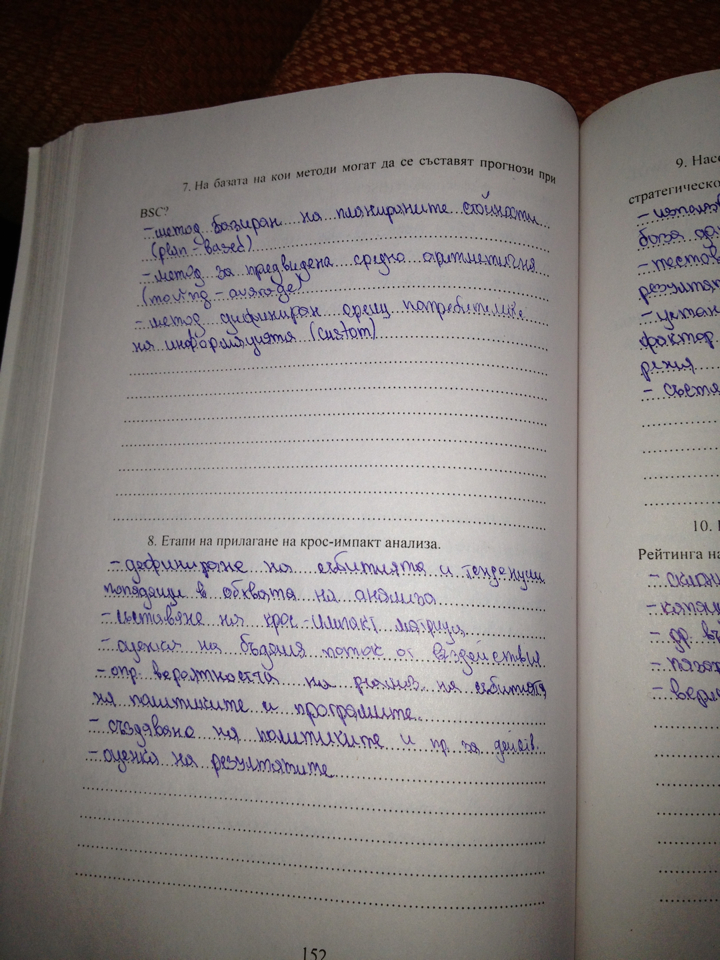 7. На базата на кои методи могат да се съставят прогнози при
BSC?
- метод базиран на планираните стойности
(plan - based)
- метод за предвидена средно аритметична
(moving - average)
- метод дефиниран срещу потребителите
на информацията (custom)
8. Етапи на прилагане на крос-импакт анализа.
- дефиниране на събитията и тенденции
попадащи в обхвата на анализа
- съставяне на крос-импакт матрица
- оценка на бъдещия поток от въздействия
- опр. вероятността на реализ. на събитията
на политиките и програмите
- създаване на политиките и пр. за действ.
- оценка на резултатите
152
9. Нас
стратегическо
- използв
база
- тестов
резултат
- устан
фактор
рения
- състя
10.
Рейтинга на
- склон
- капац
- др. въ
- пазар
- верл